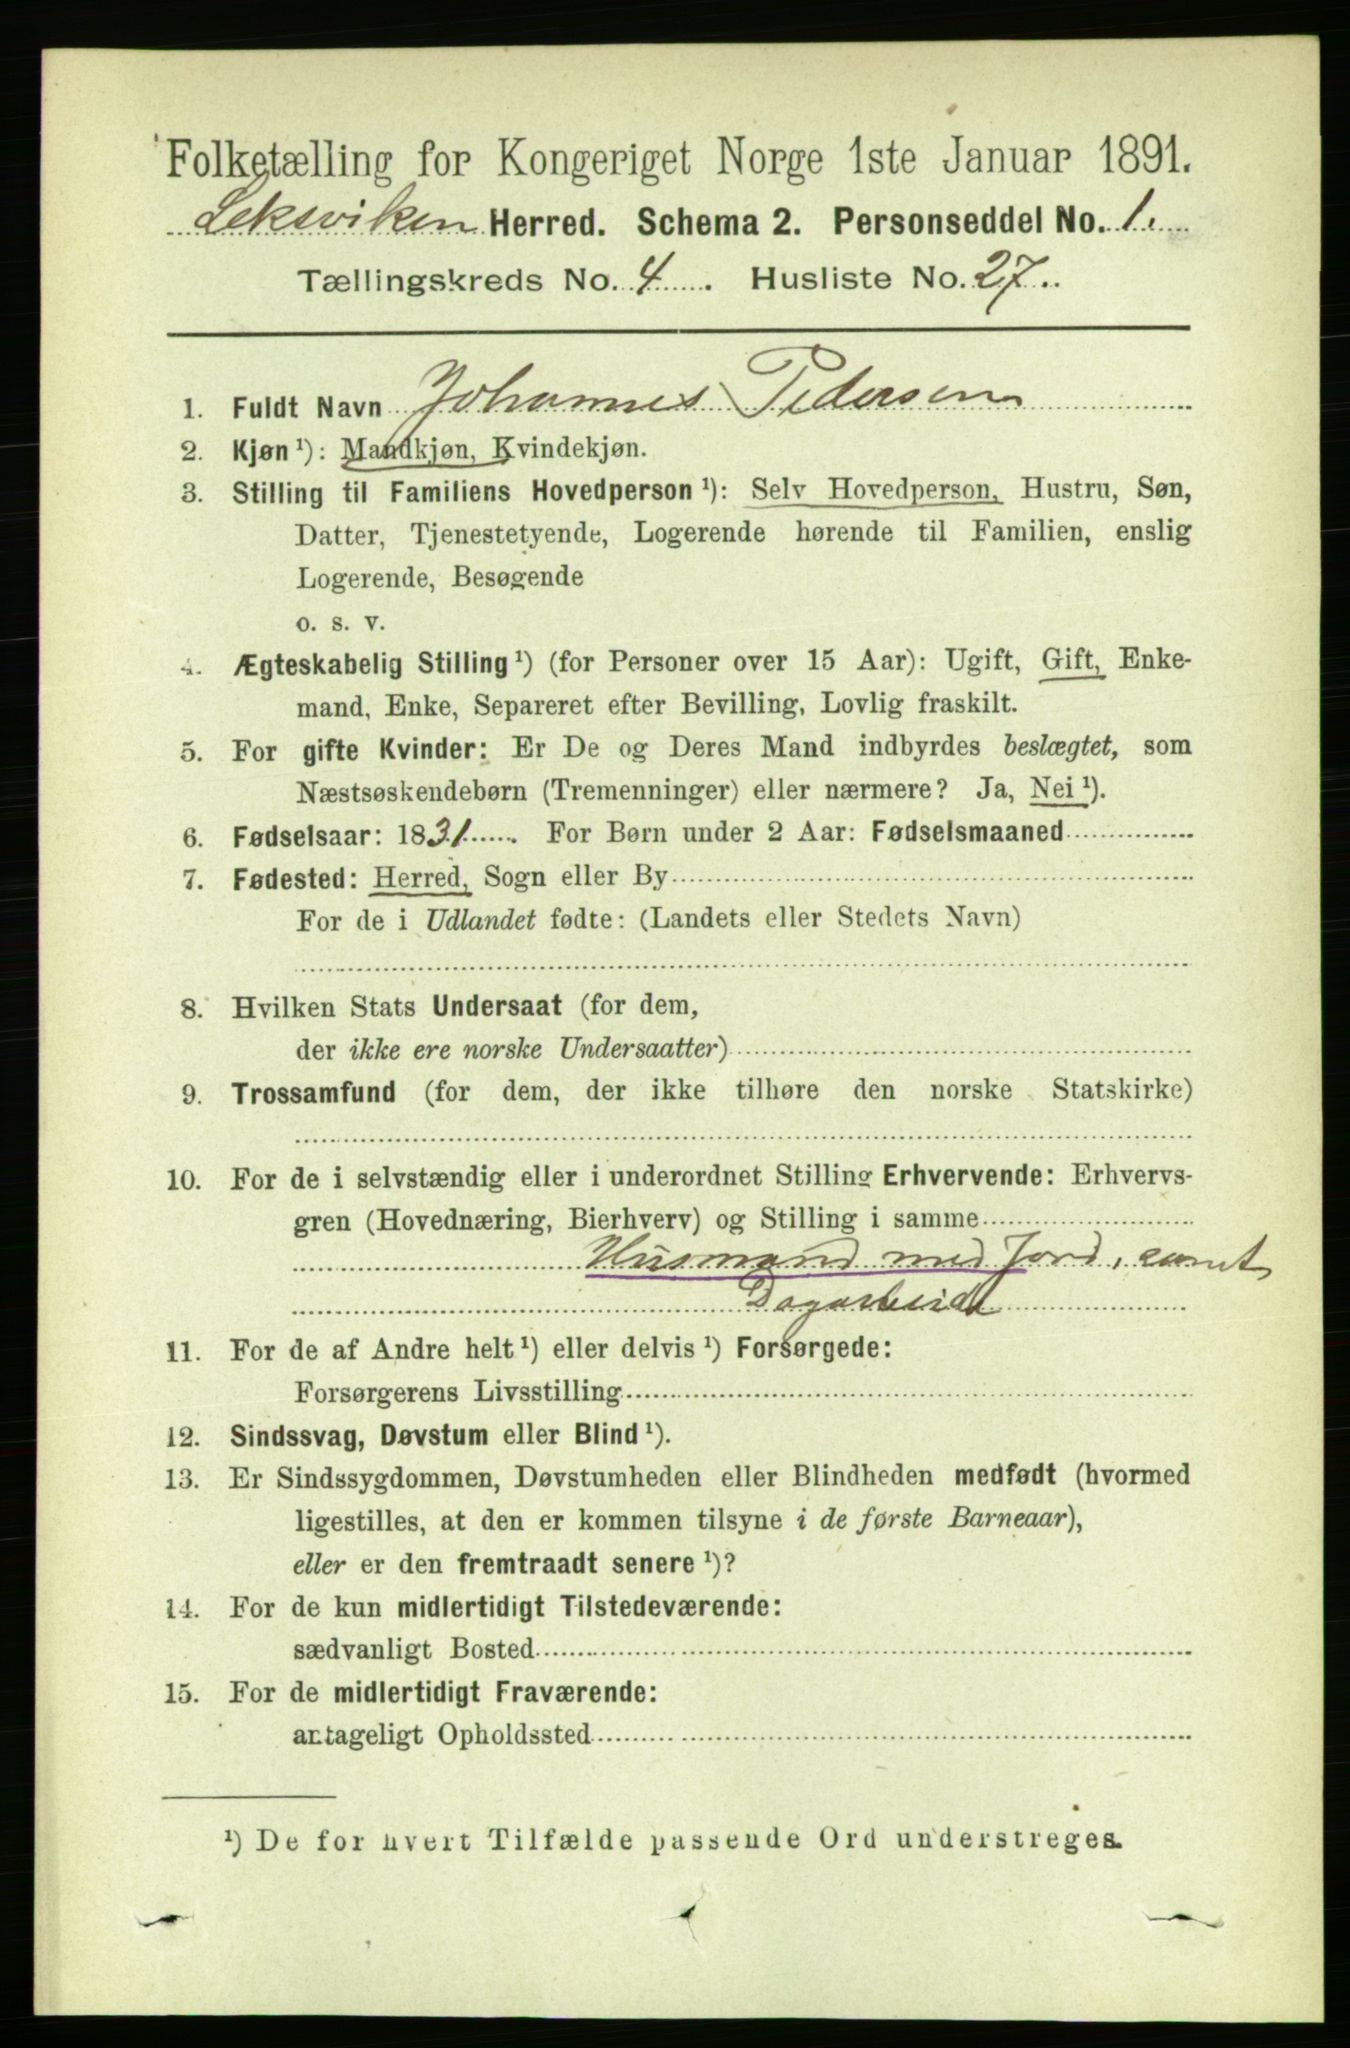 Folketælling for Kongeriget Norge 1ste Januar 1891.
Leksviken Herred. Schema 2. Personseddel No. 1.
Tællingskreds No. 4. Husliste No. 27.
1. Fuldt Navn Johannes Pedersen
2. Kjøn ¹): Mandkjøn, Kvindekjøn.
3. Stilling til Familiens Hovedperson ¹): Selv Hovedperson, Hustru, Søn,
Datter, Tjenestetyende, Logerende hørende til Familien, enslig
Logerende, Besøgende
o. s. v.
4. Ægteskabelig Stilling ¹) (for Personer over 15 Aar): Ugift, Gift, Enke-
mand, Enke, Separeret efter Bevilling, Lovlig fraskilt.
5. For gifte Kvinder: Er De og Deres Mand indbyrdes beslægtet, som
Næstsøskendebørn (Tremenninger) eller nærmere? Ja, Nei ¹).
6. Fødselsaar: 1831. For Børn under 2 Aar: Fødselsmaaned
7. Fødested: Herred, Sogn eller By
For de i Udlandet fødte: (Landets eller Stedets Navn)
8. Hvilken Stats Undersaat (for dem,
der ikke ere norske Undersaatter)
9. Trossamfund (for dem, der ikke tilhøre den norske Statskirke)
10. For de i selvstændig eller i underordnet Stilling Erhvervende: Erhvervs-
gren (Hovednæring, Bierhverv) og Stilling i samme
Husmand med Jord, samt
Dagarbeide
11. For de af Andre helt ¹) eller delvis ¹) Forsørgede:
Forsørgerens Livsstilling
12. Sindssvag, Døvstum eller Blind ¹).
13. Er Sindssygdommen, Døvstumheden eller Blindheden medfødt (hvormed
ligestilles, at den er kommen tilsyne i de første Barneaar),
eller er den fremtraadt senere ¹)?
14. For de kun midlertidigt Tilstedeværende:
sædvanligt Bosted
15. For de midlertidigt Fraværende:
antageligt Opholdssted
¹) De for hvert Tilfælde passende Ord understreges.